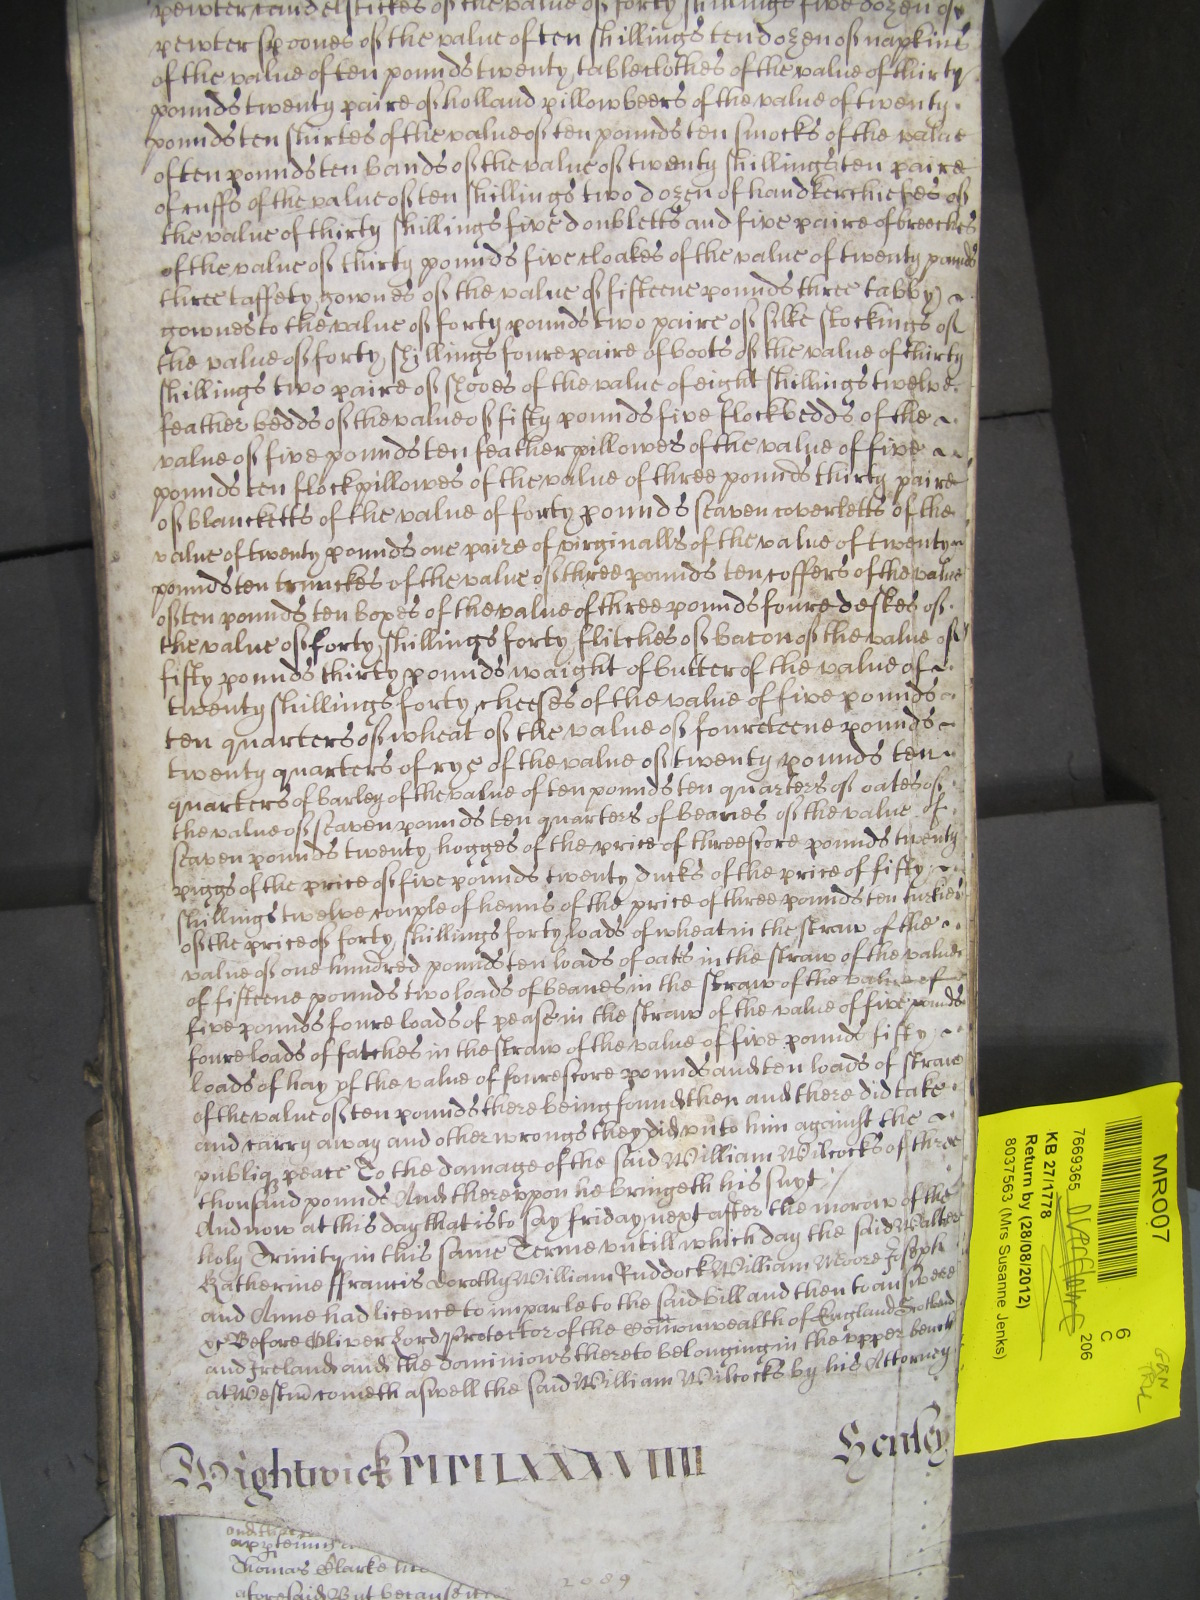 pewter candelstickes of the value of forty shillings five dozen of
pewter spoones of the value of ten shillings ten dozen of napkins
of the value of ten pounds twenty tableclothes of the value of thirty
pounds twenty paire of holland pillowbeers of the value of twenty
pounds ten shirtes of the value of ten pounds ten smocks of the value
of ten pounds ten bands of the value of twenty shillings ten paire
of cuffs of the value of ten shillings two dozen of handkerchiefes of
the value of thirty shillings five doubletts and five paire of breeches
of the value of thirty pounds five cloakes of the value of twenty pounds
three taffety gownes of the value of fifteene pounds three tabby
gownes to the value of forty pounds two paire of silke stockings of
the value of forty shillings foure paire of boots of the value of thirty
shillings two paire of shooes of the value of eight shillings twelve
feather bedds of the value of fifty pounds five flockbedds of the
value of five pounds ten feather pillowes of the value of five
pounds ten flock pillowes of the value of three pounds thirty paire
of blancketts of the value of forty pounds seaven coverletts of the
value of twenty pounds one paire of virginalls of the value of twenty
pounds ten trunckes of the value of three pounds ten coffers of the value
of ten pounds ten boxes of the value of three pounds foure deskes of
the value of forty shillings forty flitches of bacon of the value of
fifty pounds thirty pounds waight of butter of the value of
twenty shillings forty cheeses of the value of five pounds
ten quarters of wheat of the value of foureteene pounds
twenty quarters of rye of the value of twenty pounds ten
quarters of barley of the value of ten pounds ten quarters of oates of
the value of seaven pounds ten quarters of beanes of the value of
seaven pounds twenty hogges of the price of threescore pounds twenty
piggs of the price of five pounds twenty ducks of the price of fifty
shillings twelve couple of henns of the price of three pounds ten turkies
of the price of forty shillings forty loads of wheat in the straw of the
value of one hundred pounds ten loads of oats in the straw of the value
of fifteene pounds two loads of beanes in the straw of the value of
five pounds foure loads of pease in the straw of the value of five pounds
foure loads of fatches in the straw of the value of five pounds fifty
loads of hay of the value of fourescore pounds and ten loads of straw
of the value of ten pounds there being found then and there did take
and carry away and other wrongs they did unto him against the
publiq peace To the damage of the said William Wilcocks of three
thousand pounds And thereupon he bringeth his suyt
And now at this day that is to say friday next after the morow of the
holy Trinity in this same Terme untill which day the said Walter
Katherine ffrancis Dorothy William Ruddock William Moore Joseph
and Anne had licence to imparle to the said bill and then to answere
&c Before Oliver Lord Protector of the Comonwealth of England Scotland
and Ireland and the dominions thereto belonging in the upper bench
at Westm cometh aswell the said William Wilcocks by his Attorney
Wightwick MMLXXXVIIII Henley
Thomas Clarke
aforesaid But because
2089
MR007
6
C
7669365 206
KB 27/1778
Return by (28/08/2012)
8037563 (Mrs Susanne Jenks)